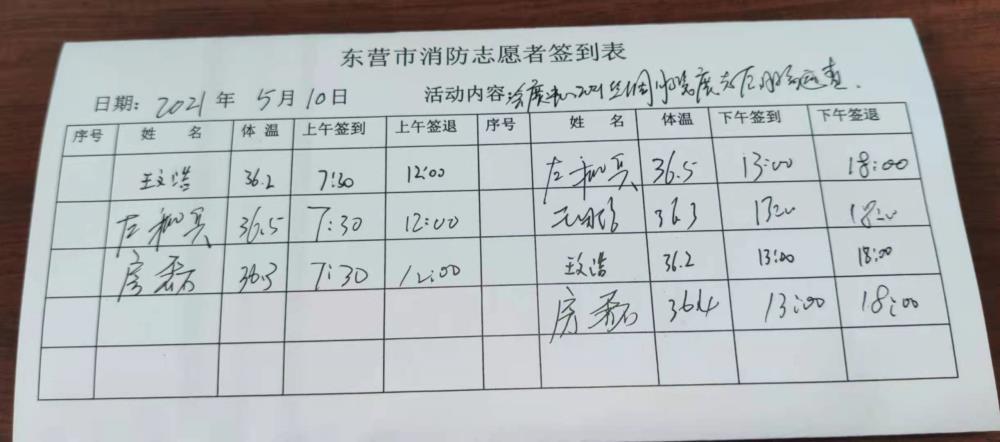 东营市消防志愿者签到表
日期: 2021 年 5 月 10 日 活动内容
序号 姓 名 体 温 上午签到 上午签退 序号 姓 名 体温 下午签到 下午签退
王文浩 36.2 7:30 12:00 左 36.5 13:00 18:00
左 36.5 7:30 12:00 36.3 13:00 18:00
房磊 36.3 7:30 12:00 王文浩 36.2 13:00 18:00
房磊 36.4 13:00 18:00